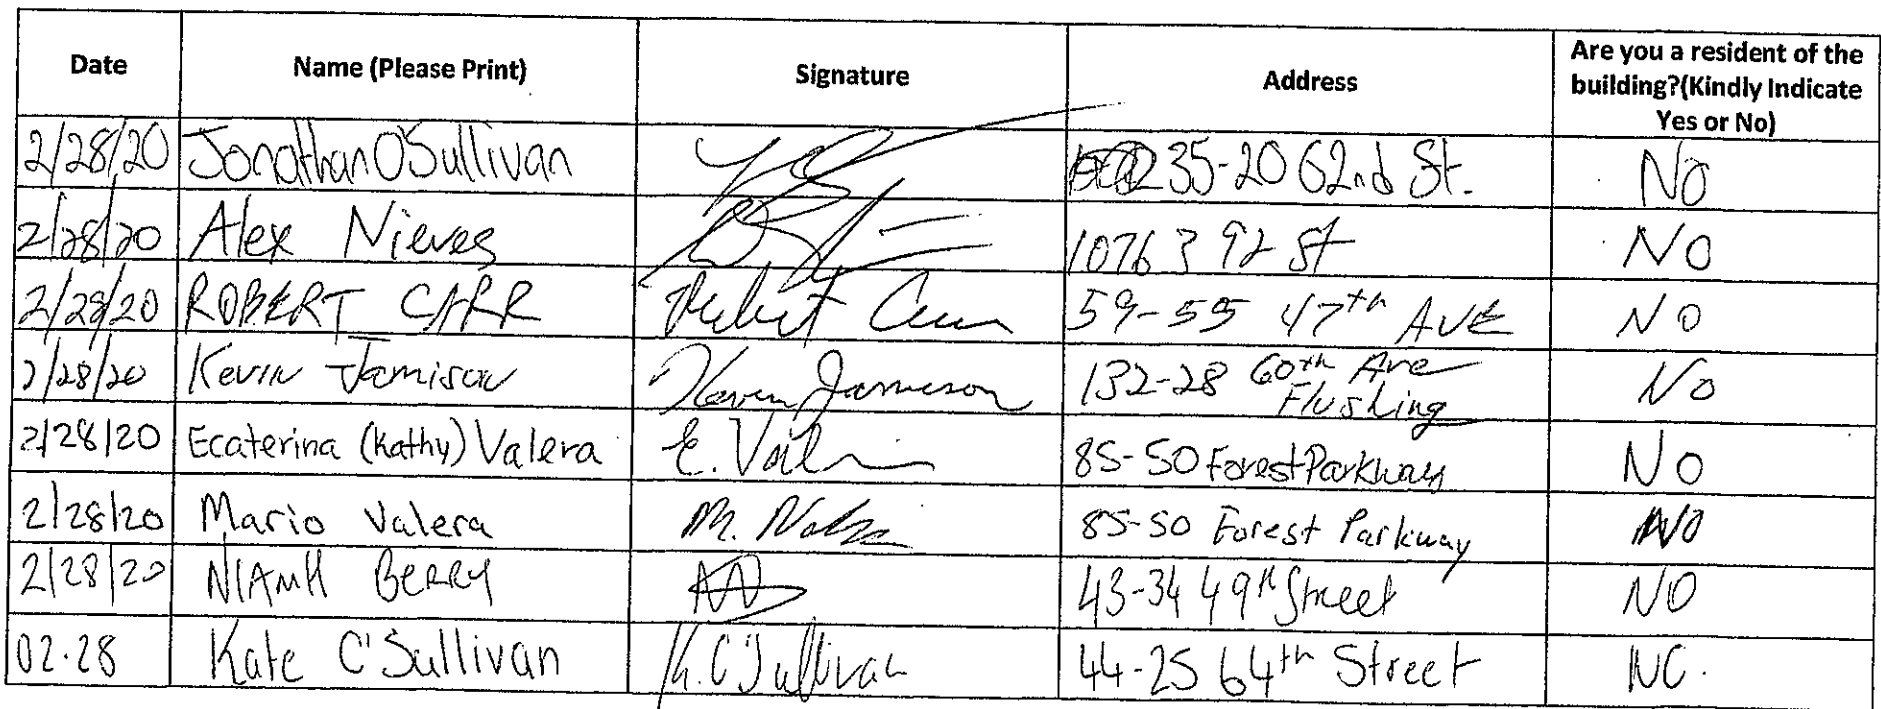 Date Name (Please Print) Signature Address Are you a resident of the building?(Kindly Indicate Yes or No)
2/28/20 Jonathan O'Sullivan 35-20 62nd St. NO
2/28/20 Alex Nieves 10763 92 St NO
2/28/20 ROBERT CARR Robert Carr 59-55 47th AVE NO
2/28/20 Kevin Jamison Kevin Jamieson 132-28 60th Ave Flushing No
2/28/20 Ecaterina (Kathy) Valera E. Val 85-50 Forest Parkway No
2/28/20 Mario Valera M. 85-50 Forest Parkway NO
2/28/20 NIAMH BERRY 43-34 49th Street NO
02.28 Kate O'Sullivan K. O'Sullivan 44-25 64th Street NO.